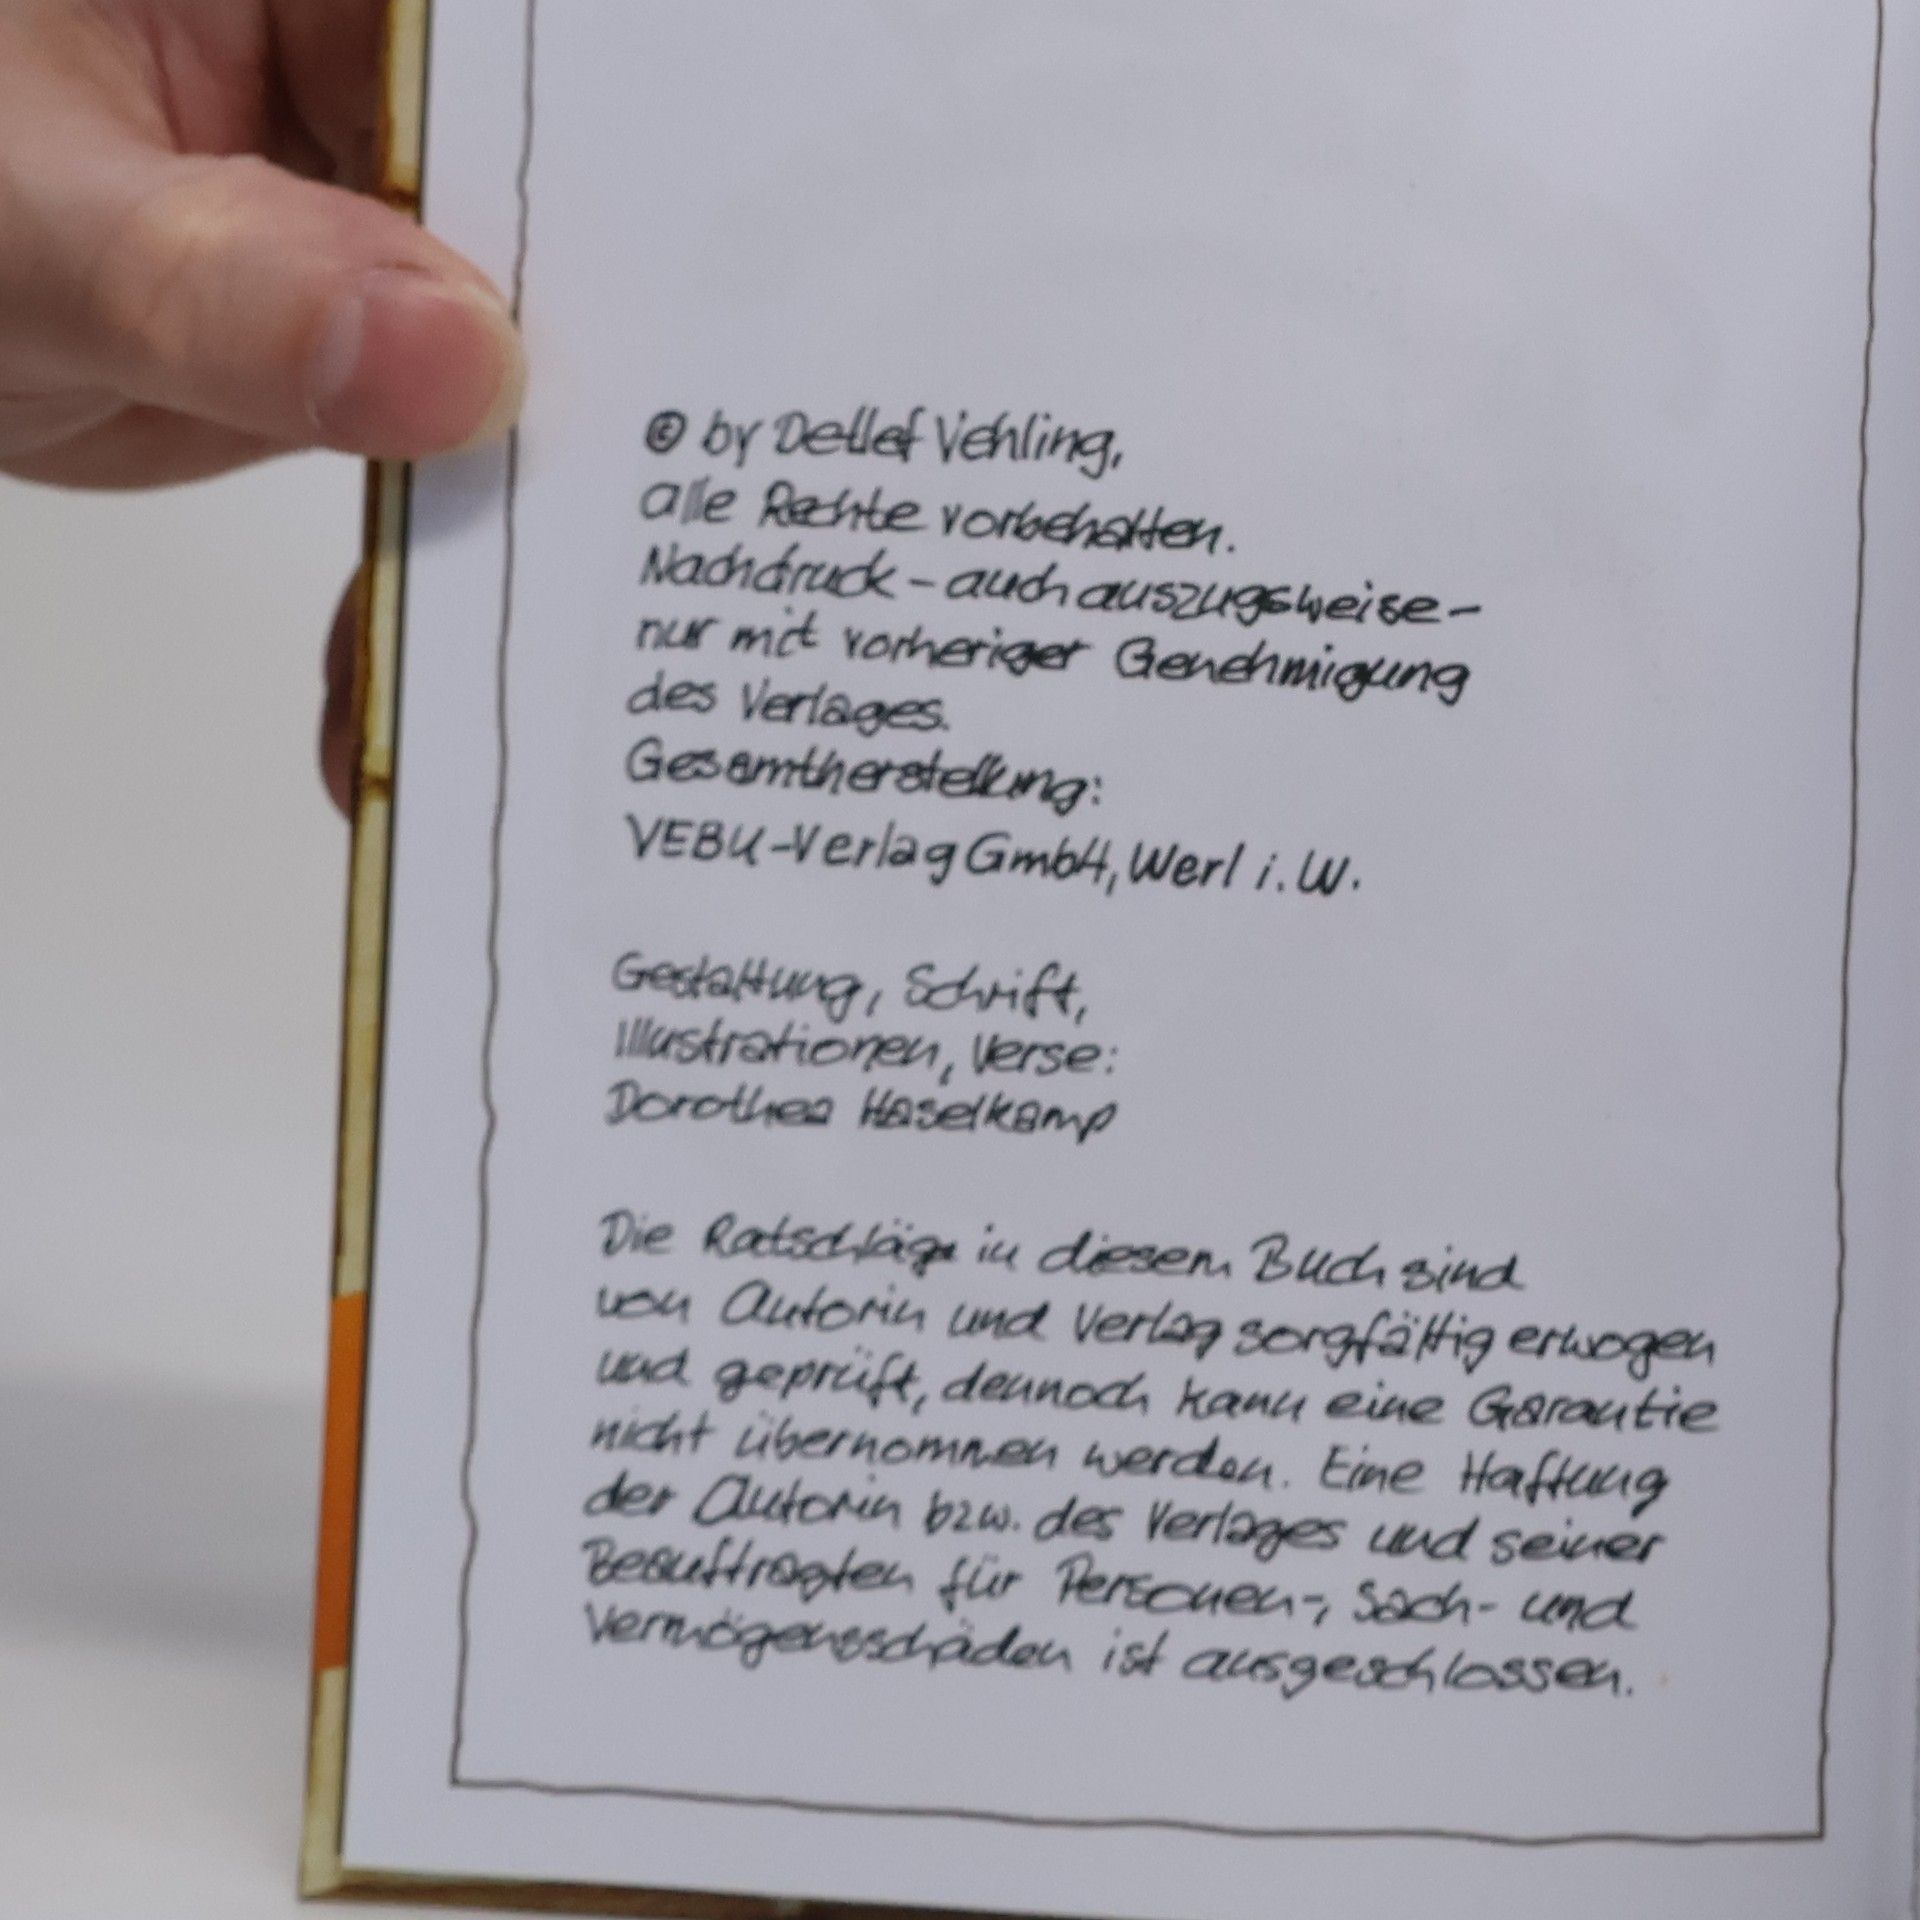 © by Detlef Vehling,
alle Rechte vorbehalten.
Nachdruck - auch auszugsweise -
nur mit vorheriger Genehmigung
des Verlages.
Gesamtherstellung:
VEBU-Verlag GmbH, Werl i. W.
Gestaltung, Schrift,
Illustrationen, Verse:
Dorothea Haselkamp
Die Ratschläge in diesem Buch sind
von Autorin und Verlag sorgfältig erwogen
und geprüft, dennoch kann eine Garantie
nicht übernommen werden. Eine Haftung
der Autorin bzw. des Verlages und seiner
Beauftragten für Personen-, Sach- und
Vermögensschäden ist ausgeschlossen.